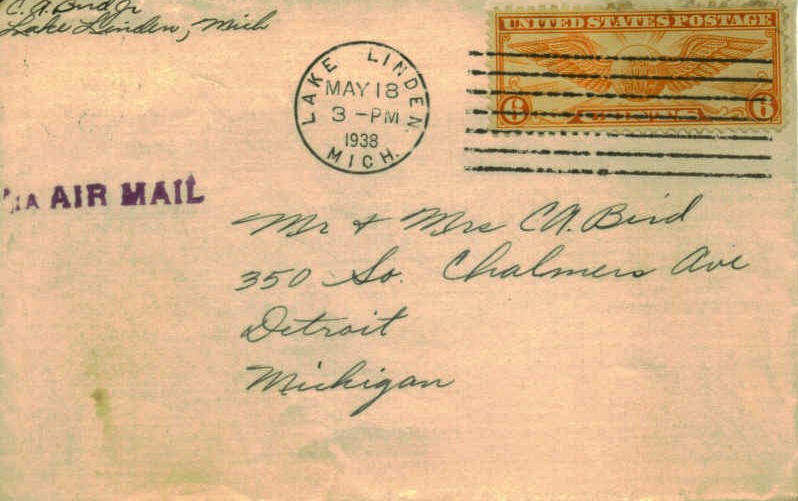 C. A. Bird Jr
Lake Linden, Mich
LAKE LINDEN, MICH.
MAY 18
3 -PM
1938
UNITED STATES POSTAGE
6 6
VIA AIR MAIL
Mr & Mrs C.A. Bird
350 So. Chalmers Ave
Detroit
Michigan